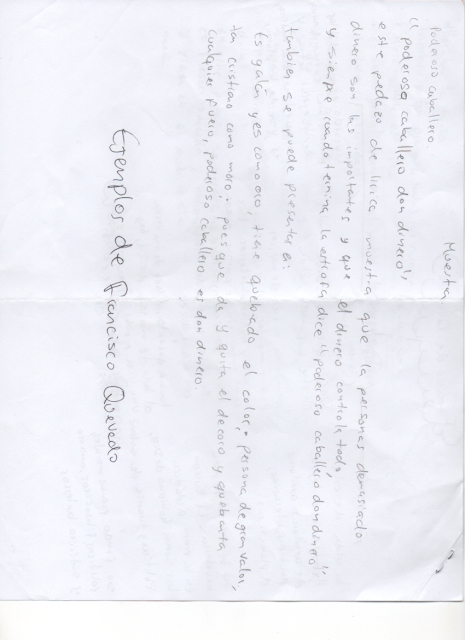 Muestra
Poderoso caballero
"poderoso caballero don dinero"
este pedazo de lirica muestra que la personas demasiado
dinero son las impoltates y que el dinero controla todo
y siempre cuando termina la estrofa dice "poderoso caballero don dinero"
tambien se puede presentar en:
Es galan y es como oro, tiene quebrado el color, persona de gran valor,
tan cristiano como moro; pues que da y quita el decoro y quebranta
cualquier fuero, poderoso caballero es don dinero.
Ejemplos de Francisco Quevedo